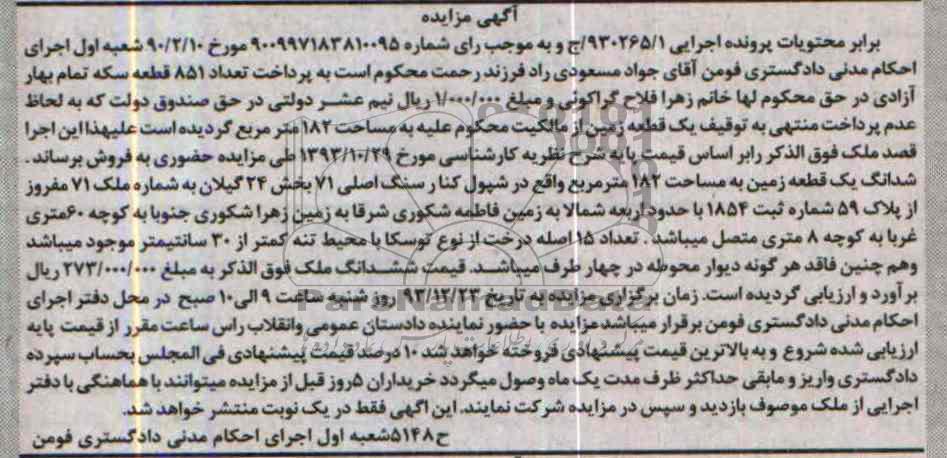 آگهی مزایده
برابر محتویات پرونده اجرایی ۹۳۰۲۶۵/۱/ج و به موجب رای شماره ۹۰۰۹۹۷۱۸۳۸۱۰۰۹۵ مورخ ۹۰/۲/۱۰ شعبه اول اجرای
احکام مدنی دادگستری فومن آقای جواد مسعودی راد فرزند رحمت محکوم است به پرداخت تعداد ۸۵۱ قطعه سکه تمام بهار
آزادی در حق محکوم لها خانم زهرا فلاح گراکوئی و مبلغ ۱/۰۰۰/۰۰۰ ریال نیم عشر دولتی در حق صندوق دولت که به لحاظ
عدم پرداخت منتهی به توقیف یک قطعه زمین از مالکیت محکوم علیه به مساحت ۱۸۲ متر مربع گردیده است علیهذا این اجرا
قصد ملک فوق الذکر رابر اساس قیمت پایه شرح نظریه کارشناسی مورخ ۱۳۹۳/۱۰/۲۹ طی مزایده حضوری به فروش برساند .
شدانگ یک قطعه زمین به مساحت ۱۸۲ مترمربع واقع در شپول کنار سنگ اصلی ۷۱ بخش ۲۴ گیلان به شماره ملک ۷۱ مفروز
از پلاک ۵۹ شماره ثبت ۱۸۵۴ با حدود اربعه شمالا به زمین فاطمه شکوری شرقا به زمین زهرا شکوری جنوبا به کوچه ۶۰متری
غربا به کوچه ۸ متری متصل میباشد . تعداد ۱۵ اصله درخت از نوع توسکا با محیط تنه کمتر از ۳۰ سانتیمتر موجود میباشد
وهم چنین فاقد هر گونه دیوار محوطه در چهار طرف میباشد. قیمت ششدانگ ملک فوق الذکر به مبلغ ۲۷۳/۰۰۰/۰۰۰ ریال
برآورد و ارزیابی گردیده است. زمان برگزاری مزایده به تاریخ ۹۳/۱۲/۲۳ روز شنبه ساعت ۹ الی۱۰ صبح در محل دفتر اجرای
احکام مدنی دادگستری فومن برقرار میباشد مزایده با حضور نماینده دادستان عمومی وانقلاب راس ساعت مقرر از قیمت پایه
ارزیابی شده شروع و به بالاترین قیمت پیشنهادی فروخته خواهد شد ۱۰ درصد قیمت پیشنهادی فی المجلس بحساب سپرده
دادگستری واریز و مابقی حداکثر ظرف مدت یک ماه وصول میگردد خریداران ۵روز قبل از مزایده میتوانند با هماهنگی با دفتر
اجرایی از ملک موصوف بازدید و سپس در مزایده شرکت نمایند. این اگهی فقط در یک نوبت منتشر خواهد شد.
ح۵۱۴۸ شعبه اول اجرای احکام مدنی دادگستری فومن
ParsNamadData